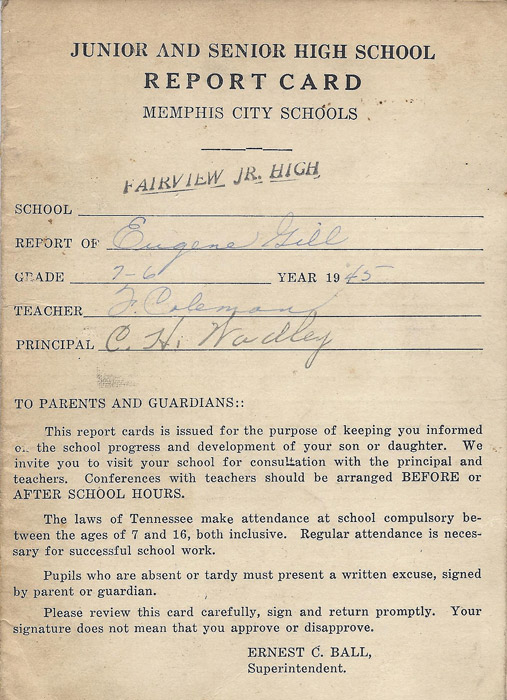 JUNIOR AND SENIOR HIGH SCHOOL
REPORT CARD
MEMPHIS CITY SCHOOLS
FAIRVIEW JR. HIGH
SCHOOL
REPORT OF Eugene Gill
GRADE 7-6 YEAR 1945
TEACHER F. Coleman
PRINCIPAL C. H. Wadley
TO PARENTS AND GUARDIANS::
This report cards is issued for the purpose of keeping you informed
of the school progress and development of your son or daughter. We
invite you to visit your school for consultation with the principal and
teachers. Conferences with teachers should be arranged BEFORE or
AFTER SCHOOL HOURS.
The laws of Tennessee make attendance at school compulsory be-
tween the ages of 7 and 16, both inclusive. Regular attendance is neces-
sary for successful school work.
Pupils who are absent or tardy must present a written excuse, signed
by parent or guardian.
Please review this card carefully, sign and return promptly. Your
signature does not mean that you approve or disapprove.
ERNEST C. BALL,
Superintendent.